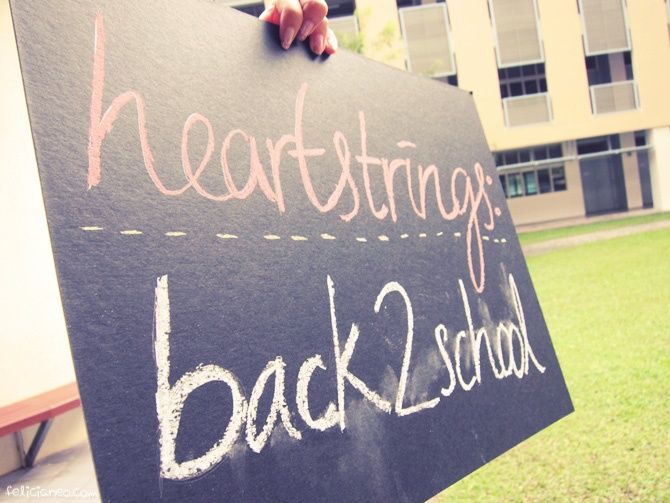 heartstrings:
back2school
felicianeo.com